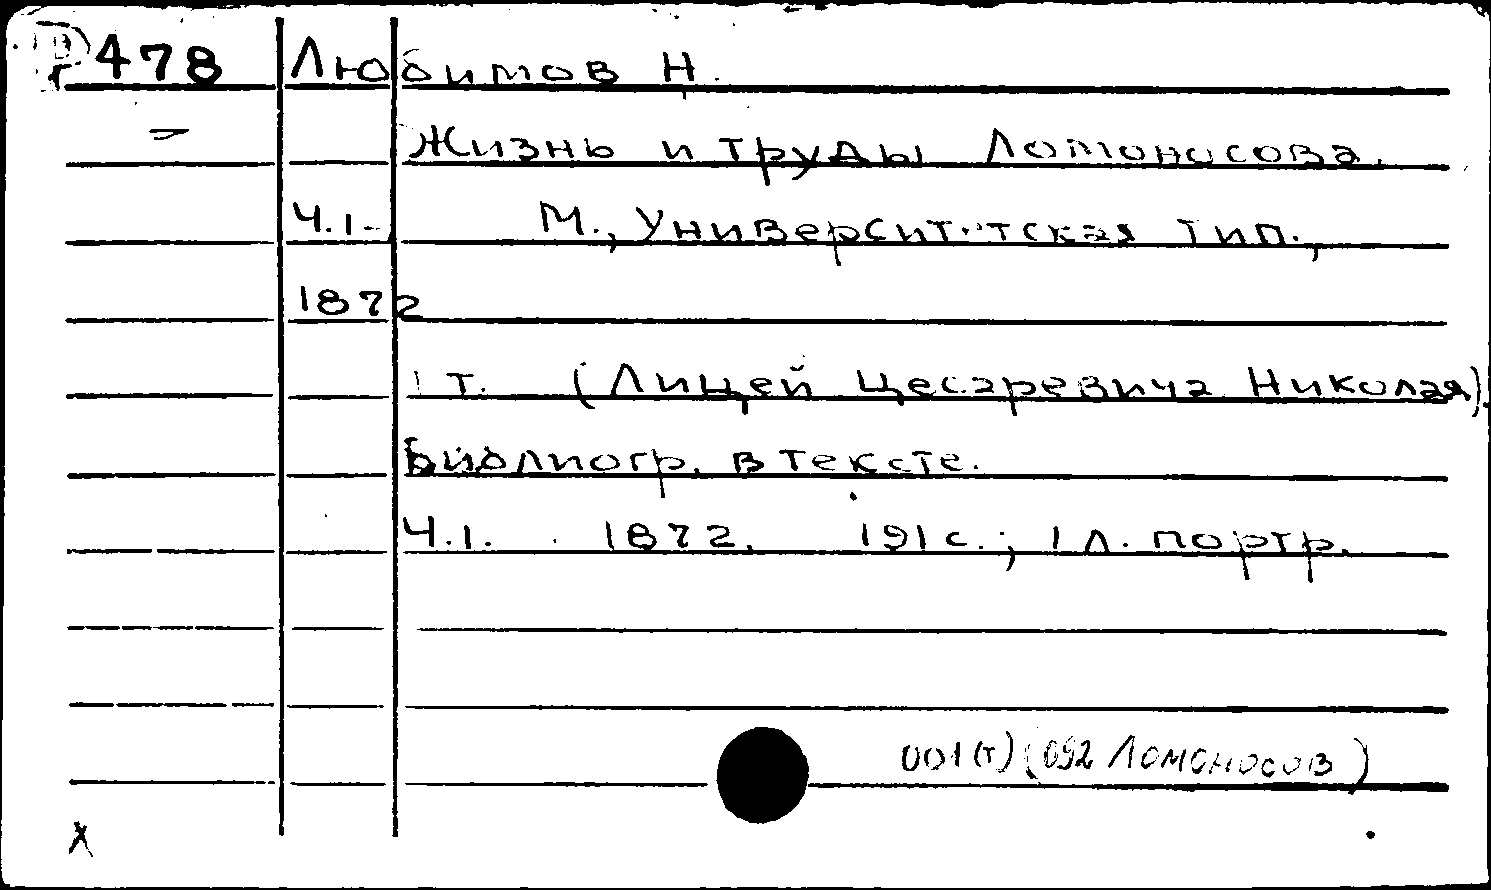 478 Любимов Н.
Жизнь и труды Ломоносова.
Ч.1- М., Университетская тип.,
1872
1 т. (Лицей Цесаревича Николая).
Библиогр. в тексте.
Ч.1. 1872. 191 с.; 1 л. портр.
001(т) (092 Ломоносов)